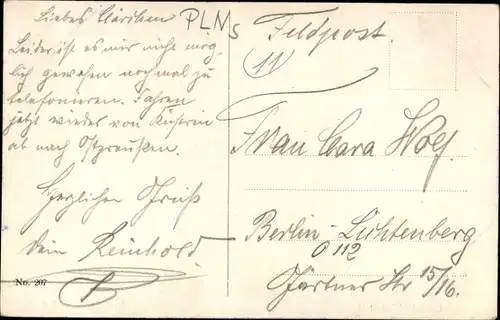 Liebes Clärchen
PLNs
Leider ist es mir nicht mög-
lich gewesen noch mal zu
telefonieren. Fahren
jetzt wieder von Küstrin
ab nach Ostpreußen.
Herzlichen Gruß
dein Reinhold.
No. 207
Feldpost.
11
Frau Clara Wolf.
Berlin-Lichtenberg
O 112
Gärtner Str 15/16.